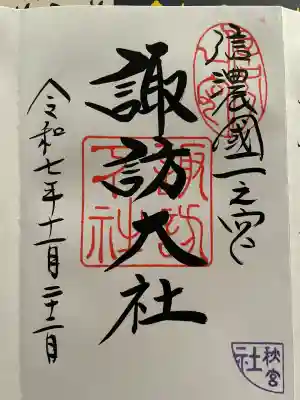 信濃國一之宮
諏訪大社
令和七年十一月二十二日
諏訪
大社
秋宮
社